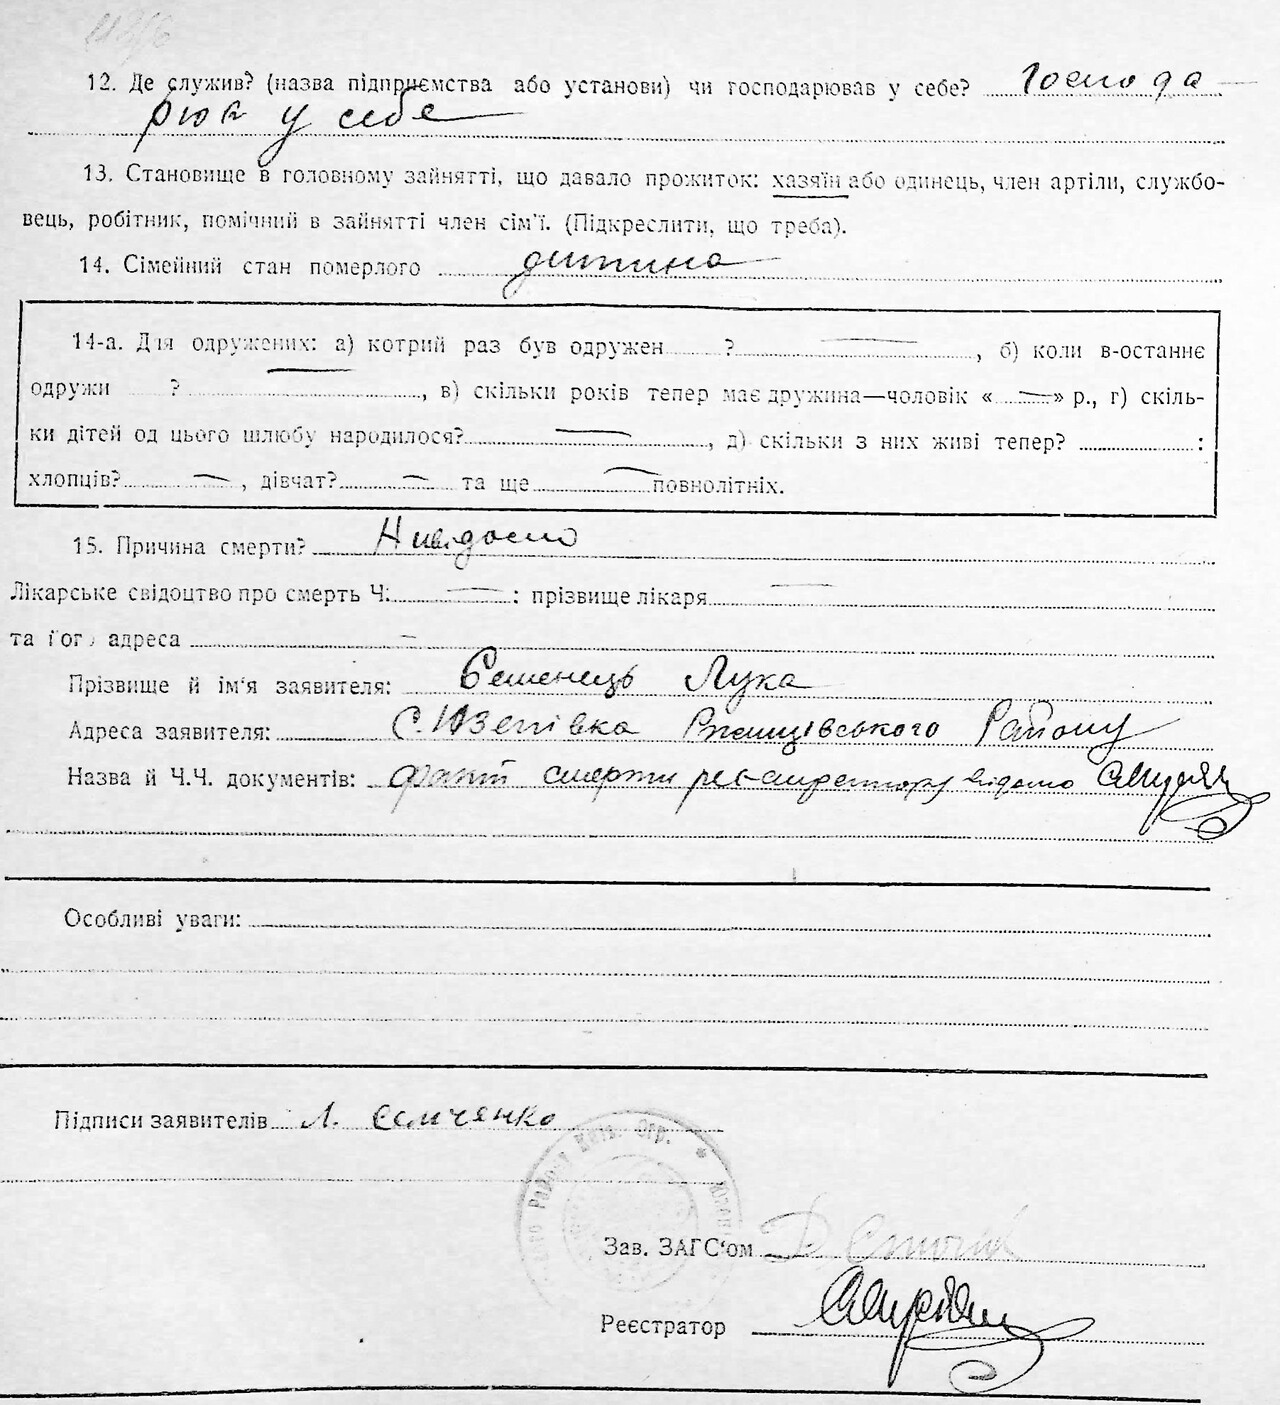 12. Де служив? (назва підприємства або установи) чи господарював у себе? Господа
рює у себе
13. Становище в головному зайнятті, що давало прожиток: хазяїн або одинець, член артіли, службо-
вець, робітник, помічний в зайнятті член сім'ї. (Підкреслити, що треба).
14. Сімейний стан померлого дитина
14-а. Для одружених: а) котрий раз був одружен ? — , б) коли в-останнє
одружи ? — , в) скільки років тепер має дружина—чоловік « — » р., г) скіль-
ки дітей од цього шлюбу народилося? — , д) скільки з них живі тепер? :
хлопців? — , дівчат? — та ще — повнолітніх.
15. Причина смерти? Невідомо
Лікарське свідоцтво про смерть Ч: — : прізвище лікаря —
та його адреса —
Прізвище й ім'я заявителя: Лука
Адреса заявителя: С. Юзепівка Ржищівського Району
Назва й Ч.Ч. документів: факт смерти реєстратору відомо
Особливі уваги:
Підписи заявителів Л. Семченко
Району Київ. Окр. *
Зав. ЗАГС'ом
Реєстратор